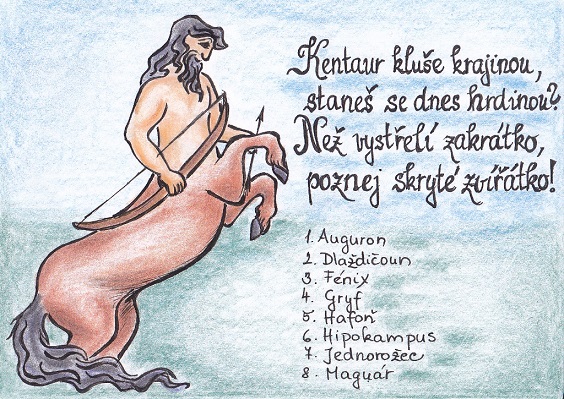 Kentaur kluše krajinou,
staneš se dnes hrdinou?
Než vystřelí zakrátko,
poznej skryté zvířátko!
1. Auguron
2. Dlaždičoun
3. Fénix
4. Gryf
5. Hafoň
6. Hipokampus
7. Jednorožec
8. Maguár